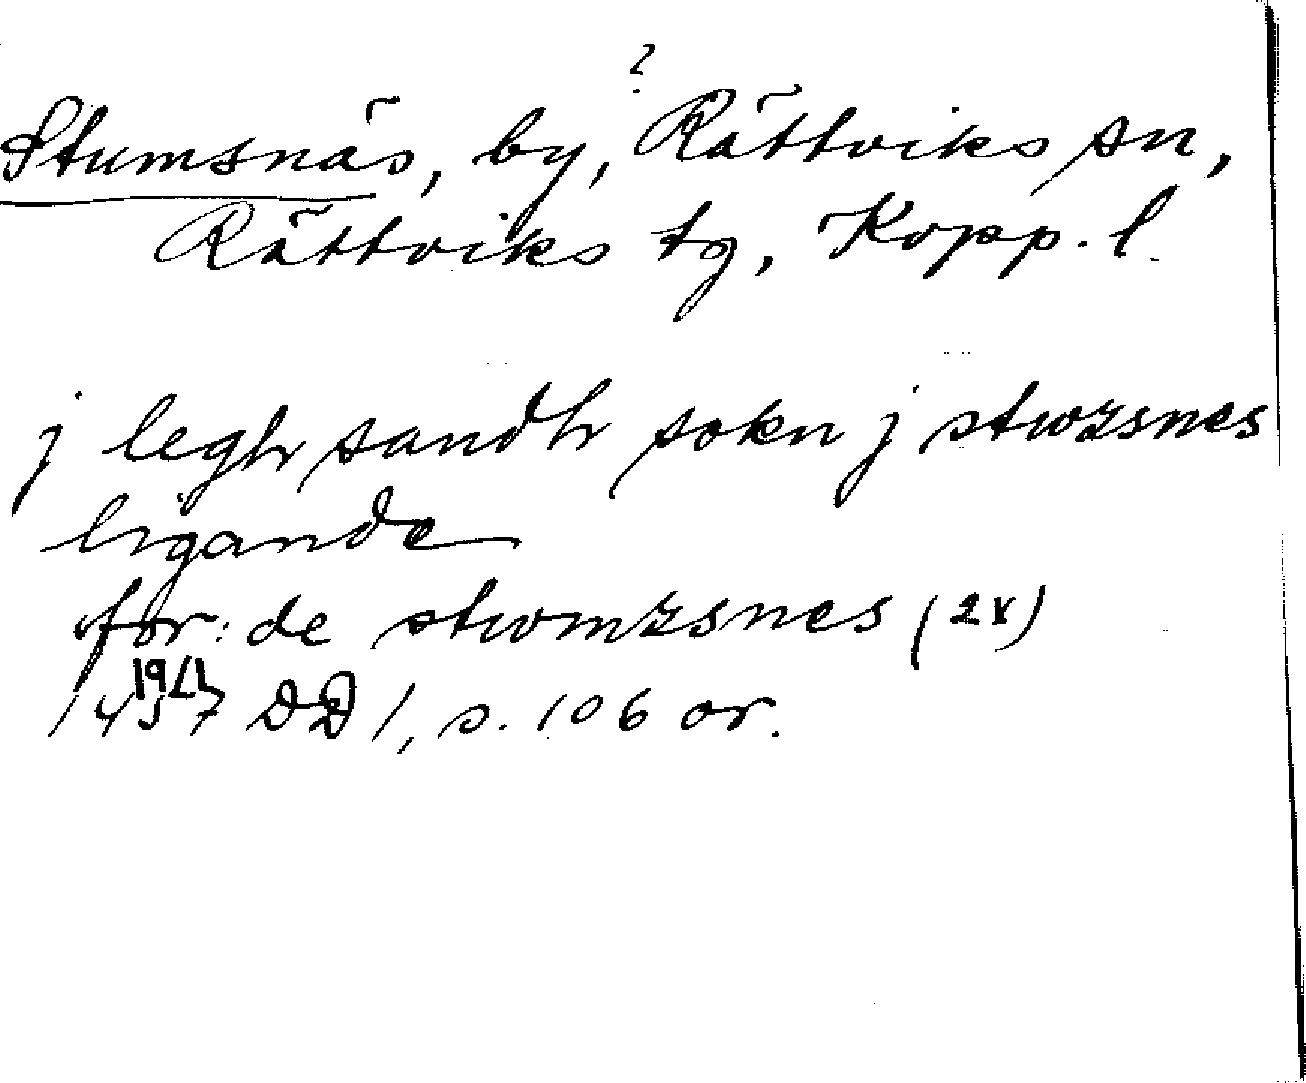 ?
Stumsnäs, by, Rättviks sn,
Rättviks tg, Kopp. l.
j leghsandh sokn j stwzsnes
ligande
for: de stwmzsnes (2x)
19/1
1457 DD 1, s. 106 or.